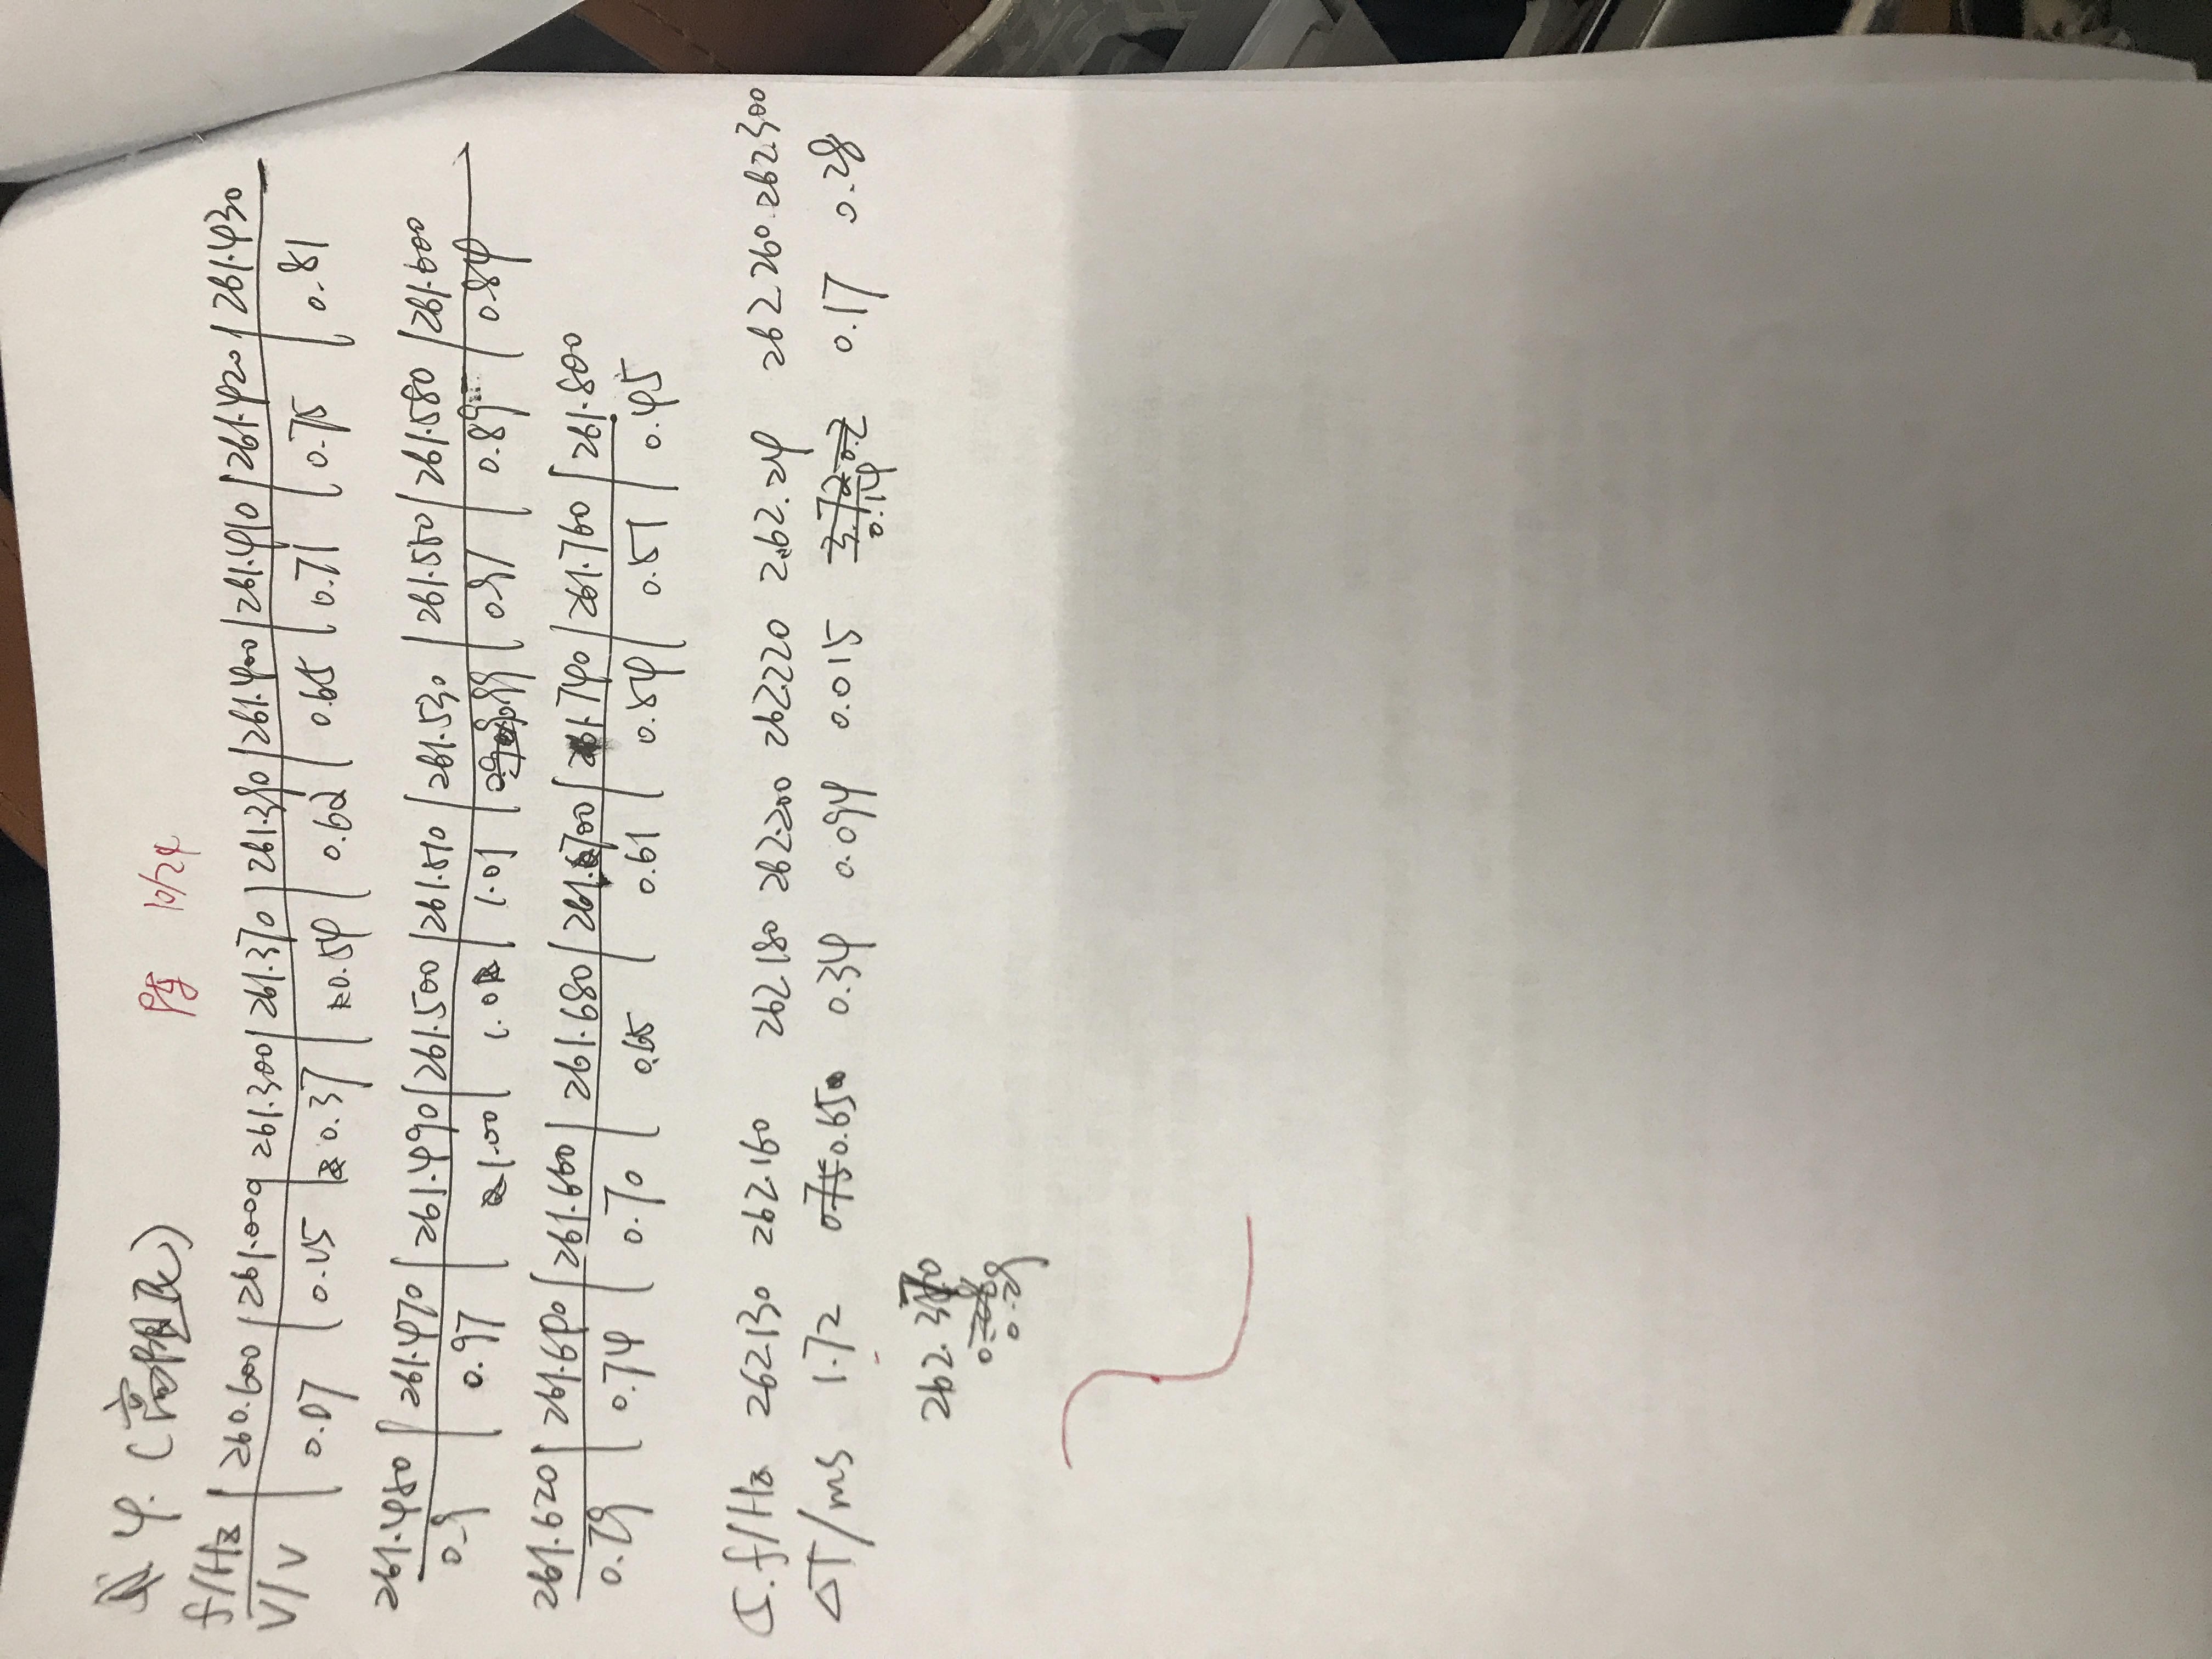 4. (高阻尼) 10/24
f/Hz 260.600 261.000 261.300 261.370 261.390 261.400 261.410 261.420 261.430
V/V 0.07 0.15 0.37 0.54 0.62 0.65 0.71 0.75 0.81
261.470 261.490 261.500 261.510 261.530 261.550 261.580 261.600
0.9 0.97 1.00 1.01 0.99 0.97 0.89 0.84
261.620 261.640 261.660 261.680 261.700 261.740 261.760 261.800
0.79 0.74 0.70 0.65 0.61 0.54 0.51 0.45
5. f/Hz 262.130 262.160 262.180 262.200 262.220 262.24 262.260 262.300
ΔT/ms 1.72 0.65 0.34 0.094 0.015 0.14 0.17 0.28
262.370
0.29